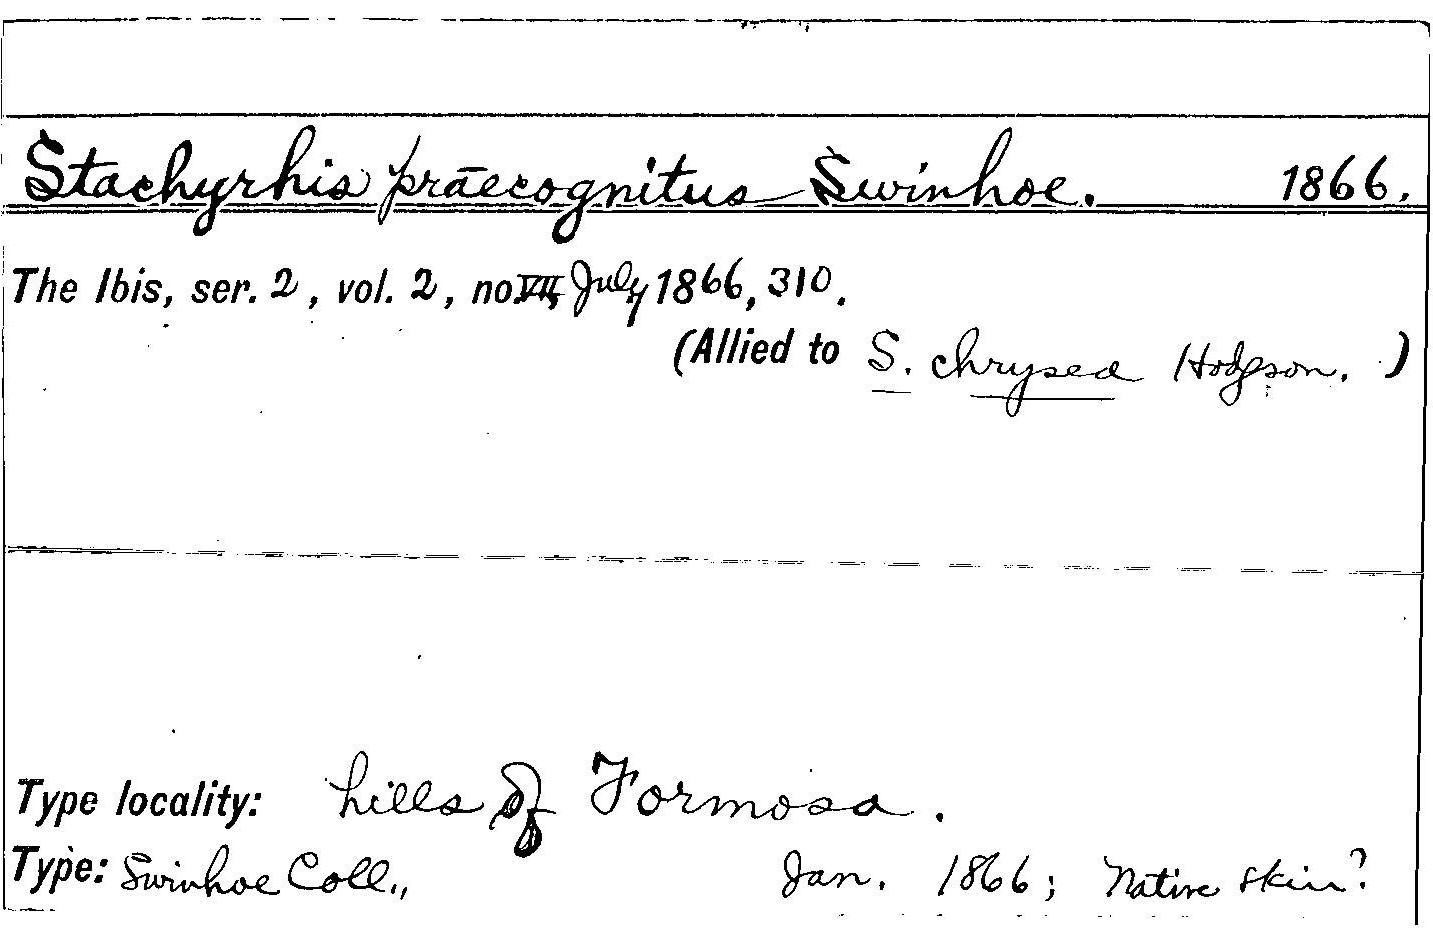 Stachyrhis præcognitus Swinhoe. 1866.
The Ibis, ser. 2, vol. 2, no VII, July 1866, 310.
(Allied to S. chrysea Hodgson. )
Type locality: hills of Formosa.
Type: Swinhoe Coll., Jan. 1866; Native skin?